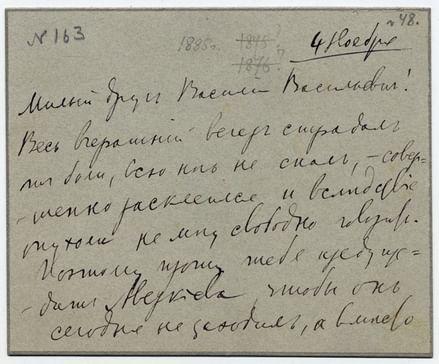 № 163
н. 48.
1885г. 1845? 1876?
4 Ноября
Милый другъ Василій Васильевич!
Весь вчерашній вечеръ страдалъ
боли, всю ночь не спалъ, – совер-
-шенно расклеился и вслѣдствіе
опухоли не могу свободно говорить.
Поэтому прошу тебя предупре-
-дить, чтобы онъ
сегодня не заходилъ, а вмѣсто